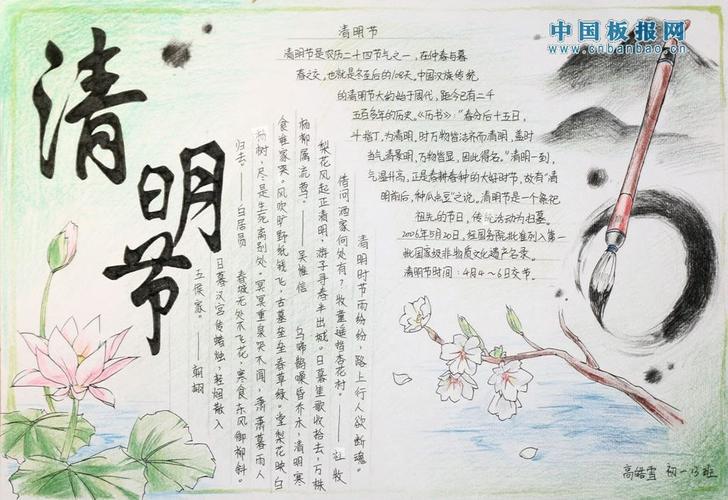 中国板报网
www.cnbanbao.cn
清明节
清明节
清明节是农历二十四节气之一，在仲春与暮
春之交，也就是冬至后的108天。中国汉族传统
的清明节大约始于周代，距今已有二千
五百多年的历史。《历书》：“春分后十五日，
斗指丁，为清明，时万物皆洁齐而清明，盖时
当气清景明，万物皆显，因此得名。”清明一到，
气温升高，正是春耕春种的大好时节，故有“清
明前后，种瓜点豆”之说。清明节是一个祭祀
祖先的节日，传统活动为扫墓。
2006年5月20日，经国务院批准列入第一
批国家级非物质文化遗产名录。
清明节时间：4月4～6日交节。
清明时节雨纷纷，路上行人欲断魂。
借问酒家何处有？牧童遥指杏花村。——杜牧
梨花风起正清明，游子寻春半出城。日暮笙歌收拾去，万株
杨柳属流莺。——吴惟信 乌啼鹊噪昏乔木，清明寒
食谁家哭。风吹旷野纸钱飞，古墓垒垒春草绿。棠梨花映白
杨树，尽是生死离别处。冥冥重泉哭不闻，萧萧暮雨人
归去。——白居易 春城无处不飞花，寒食东风御柳斜。
日暮汉宫传蜡烛，轻烟散入
五侯家。——韩翃
高皓雪 初一13班